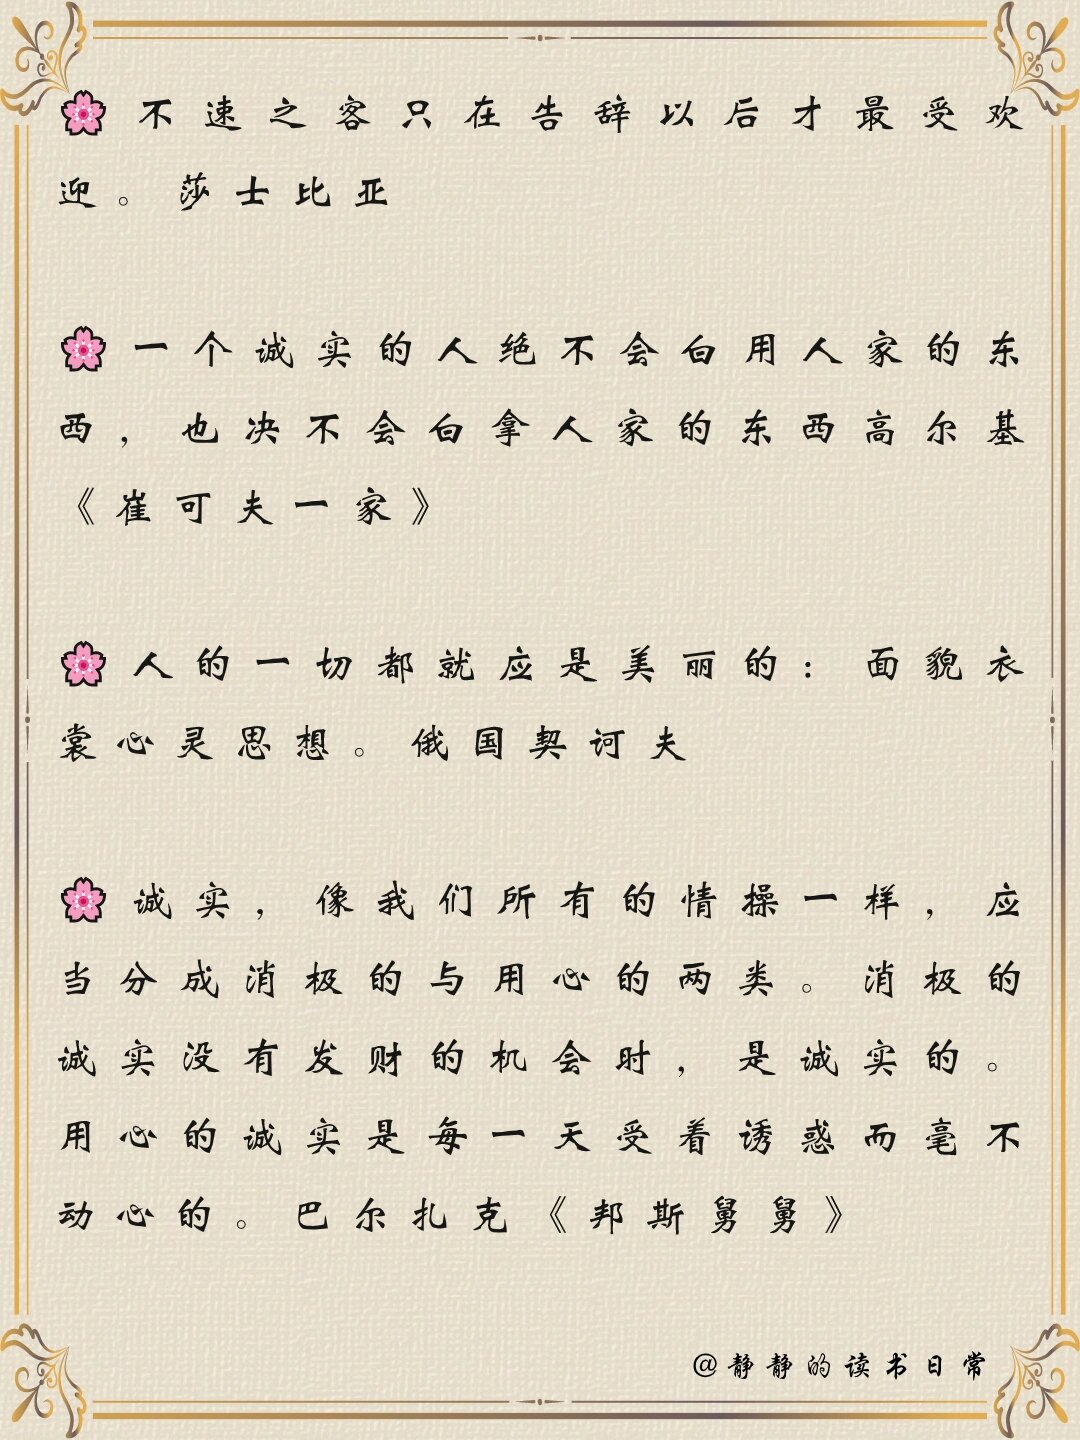 不速之客只在告辞以后才最受欢
迎。莎士比亚
一个诚实的人绝不会白用人家的东
西，也决不会白拿人家的东西高尔基
《崔可夫一家》
人的一切都就应是美丽的：面貌衣
裳心灵思想。俄国契诃夫
诚实，像我们所有的情操一样，应
当分成消极的与用心的两类。消极的
诚实没有发财的机会时，是诚实的。
用心的诚实是每一天受着诱惑而毫不
动心的。巴尔扎克《邦斯舅舅》
@静静的读书日常